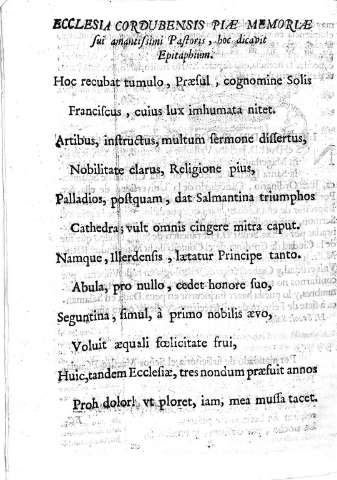 ECCLESIA CORDUBENSIS PIÆ MEMORIÆ
sui amantissimi Pastoris, hoc dicavit
Epitaphium.
Hoc recubat tumulo, Præsul, cognomine Solis
Franciscus, cuius lux imhumata nitet.
Artibus, instructus, multum sermone dissertus,
Nobilitate clarus, Religione pius,
Palladios, postquam, dat Salmantina triumphos
Cathedra; vult omnis cingere mitra caput.
Namque, Illerdensis, lætatur Principe tanto.
Abula, pro nullo, cedet honore suo,
Seguntina, simul, à primo nobilis ævo,
Voluit æquali fœlicitate frui,
Huic, tandem Ecclesiæ, tres nondum præfuit annos
Proh dolor! vt ploret, iam, mea mussa tacet.